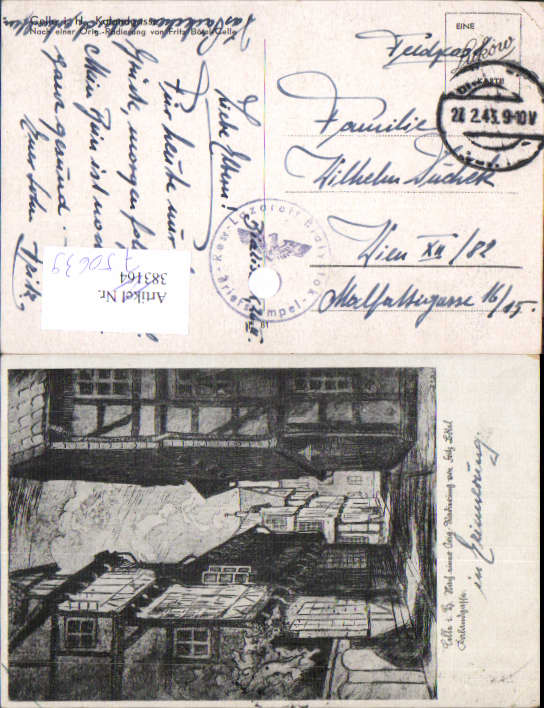 Celle i. H. Kalandgasse
Nach einer Orig.-Radierung von Fritz Bötel, Celle
EINE
Roków
KARTE
Feldpost
22 2.43. 9-10V
Familie
Wilhelm Duchek
Wien XII/82
Malfattigasse 16/15.
Liebe Eltern!
Für heute nur
Grüße, morgen
Mein Bein ist
ganz gesund.
Euer Sohn Fritz
Res.-Lazarett
Briefstempel
81
Artikel Nr.
383164
750639
Celle i. H. Nach einer Orig. Radierung von Fritz Bötel
Kalandgasse.
in Erinnerung.